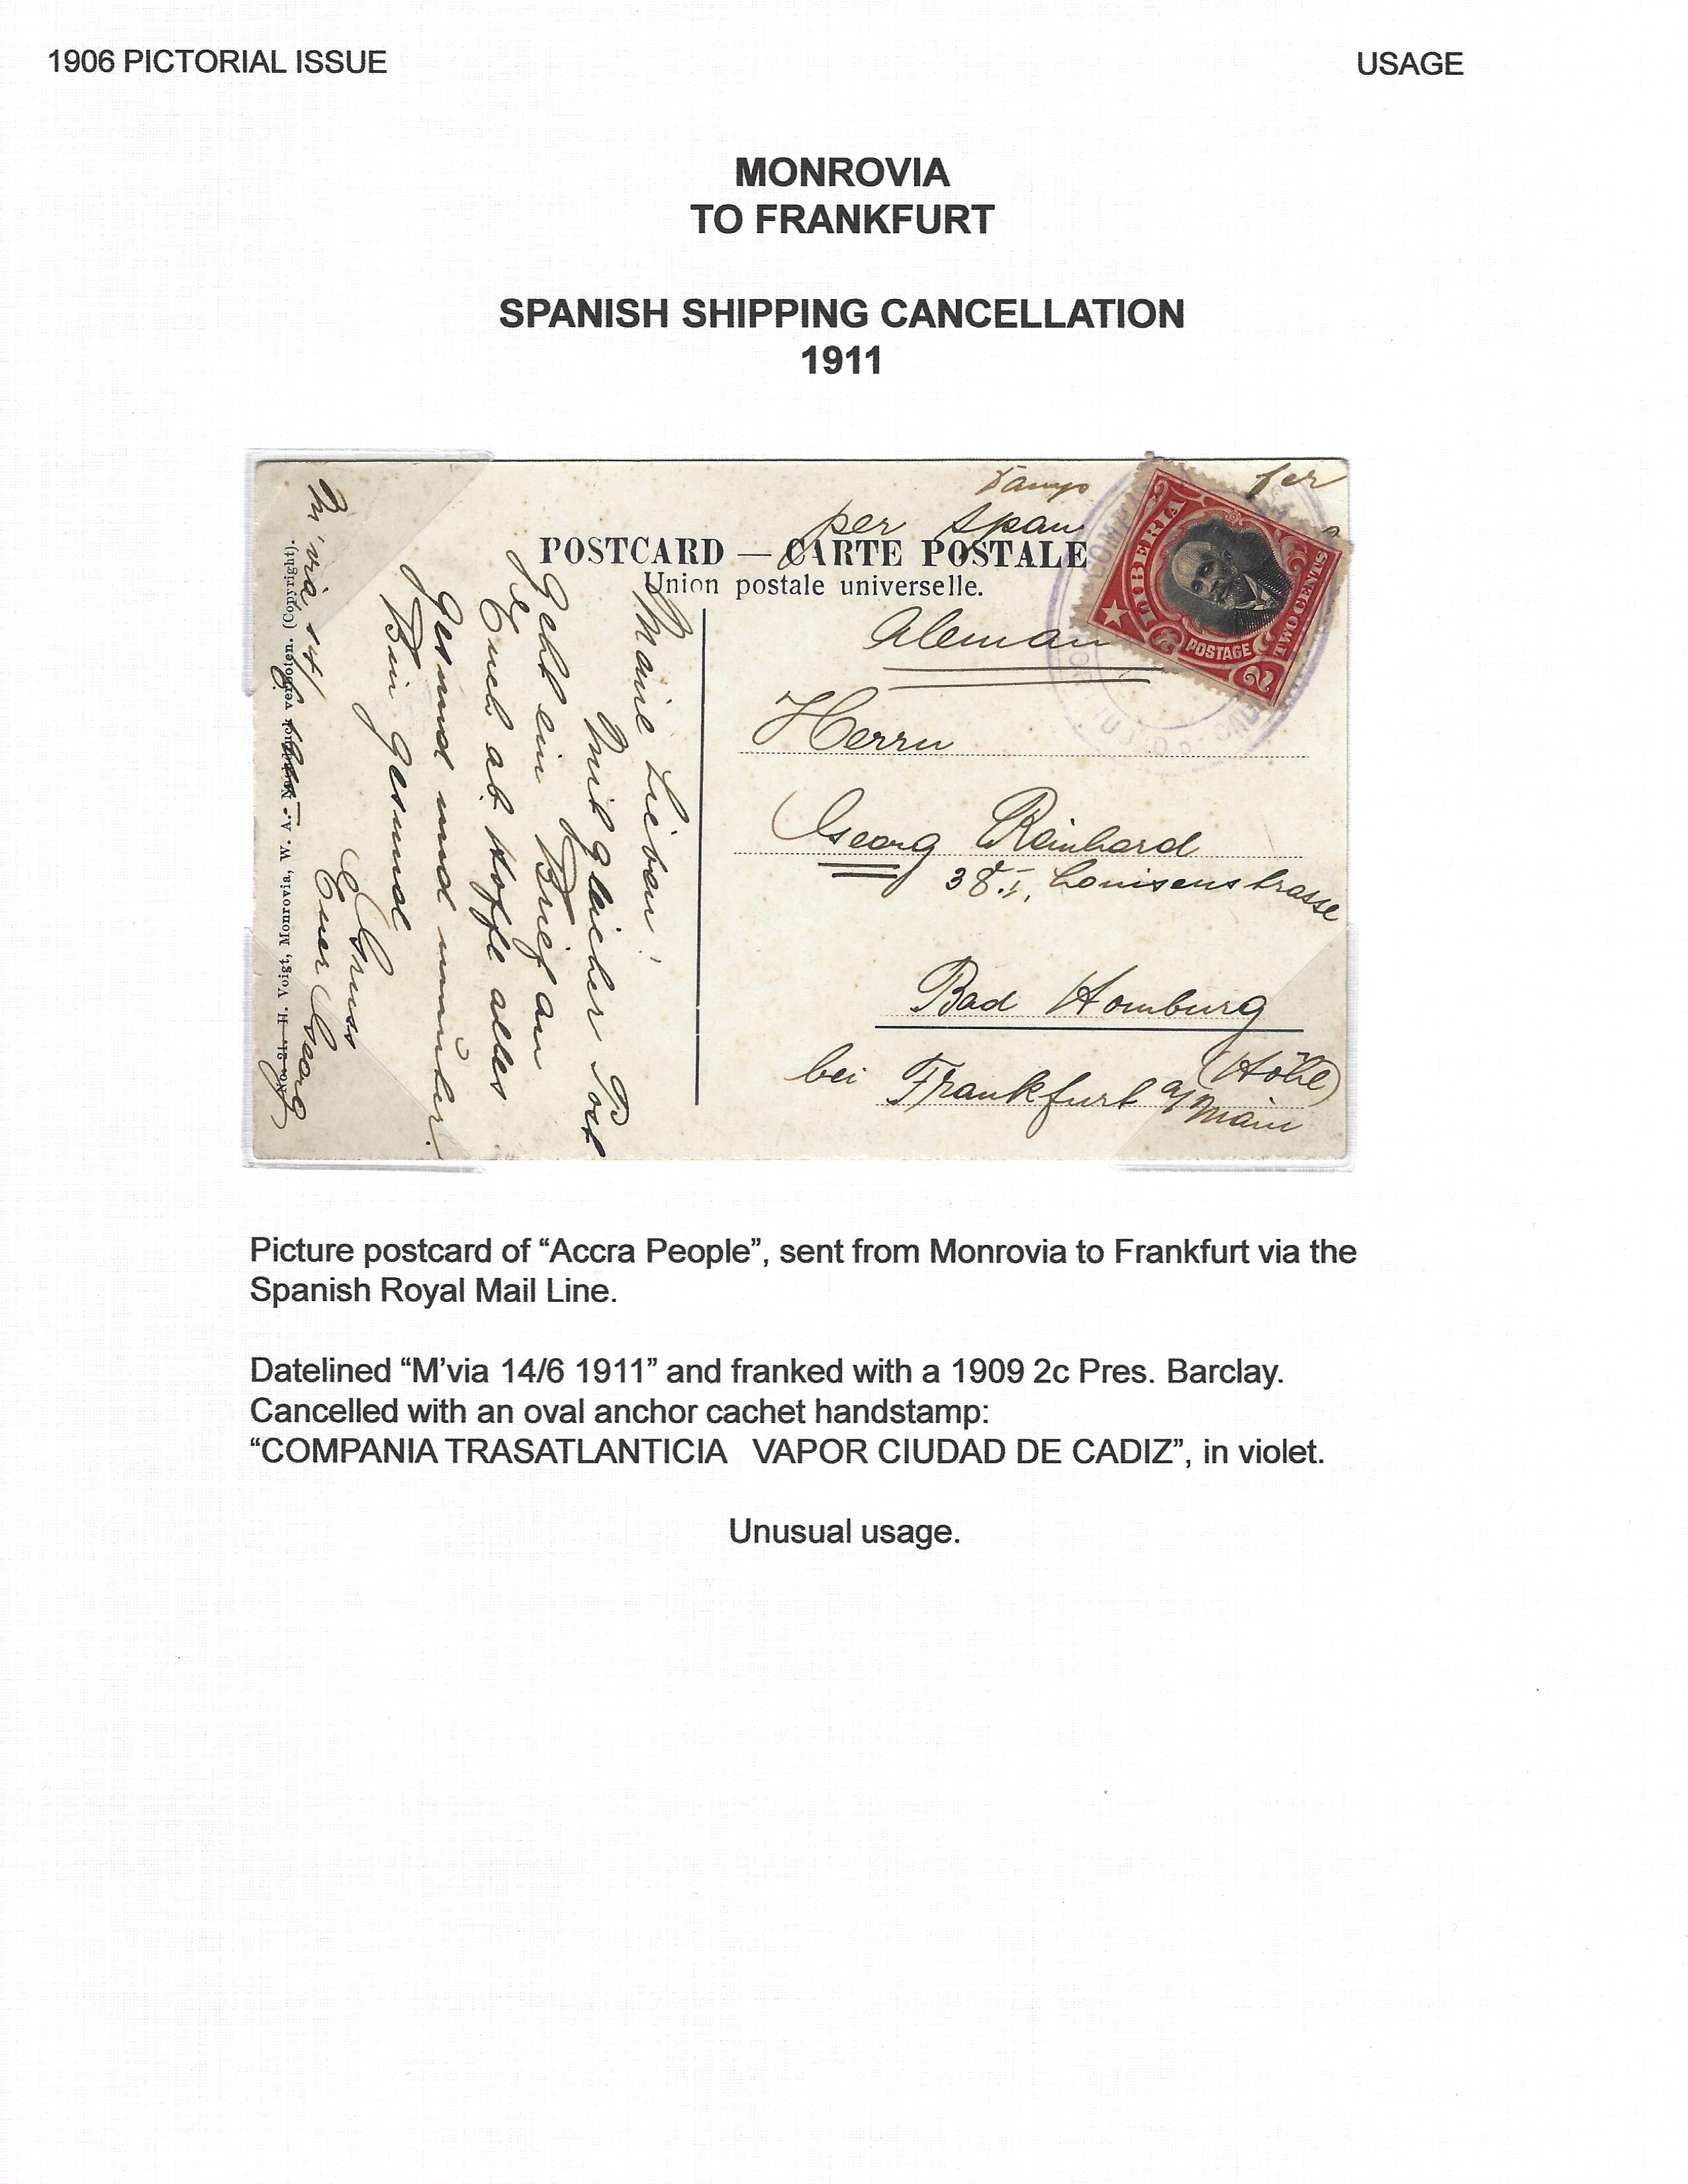 1906 PICTORIAL ISSUE
USAGE
MONROVIA
TO FRANKFURT
SPANISH SHIPPING CANCELLATION
1911
per span
POSTCARD — CARTE POSTALE
Union postale universelle.
LIBERIA
POSTAGE
TWO CENTS
2
2
Aleman
Herrn
Georg Reinhard
38 I, Louisenstrasse
Bad Homburg
(Höhe)
bei Frankfurt a/Main
Meine Lieben!
Mit gleicher Post
geht ein Brief an
Euch ab. Hoffe alles
Gesund und munter.
Bin gesund
Gruss
Euer Georg
M'via 14/6
No. 21. H. Voigt, Monrovia, W. A. Nachdruck verboten. (Copyright).
Picture postcard of “Accra People”, sent from Monrovia to Frankfurt via the
Spanish Royal Mail Line.
Datelined “M’via 14/6 1911” and franked with a 1909 2c Pres. Barclay.
Cancelled with an oval anchor cachet handstamp:
“COMPANIA TRASATLANTICIA VAPOR CIUDAD DE CADIZ”, in violet.
Unusual usage.